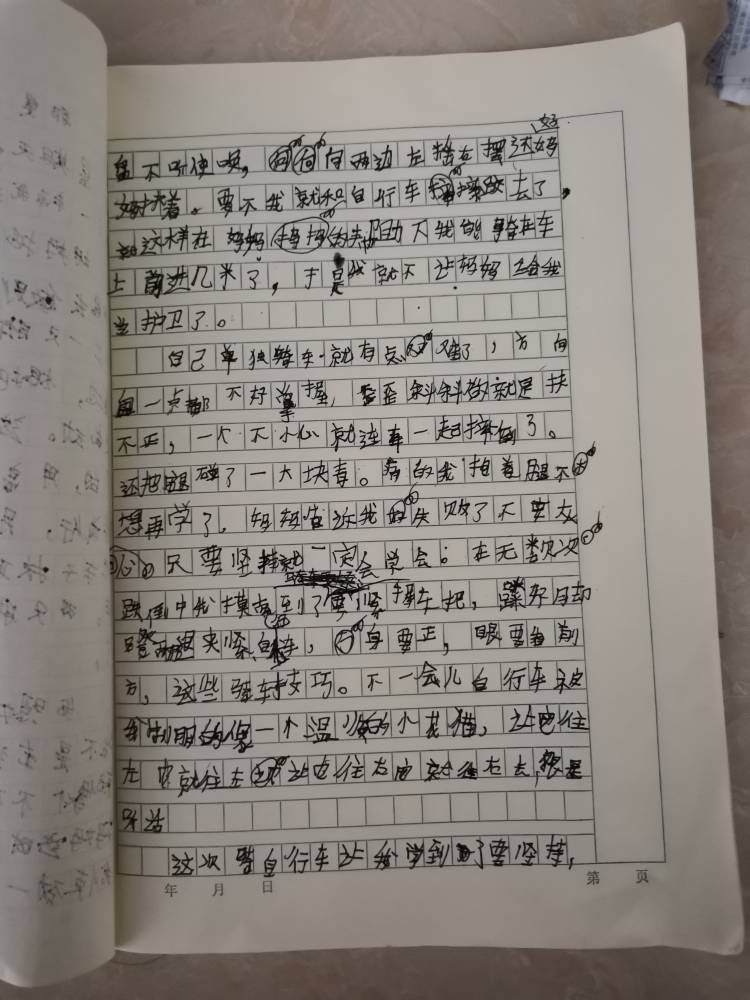 好
盘不听使唤，向两边左摇右摆还好妈
妈扶着。要不我就和自行车摔跤去了，
就这样在妈妈的帮助下我能骑在车
上前进几米了，于是我就不让妈妈给我
当护卫了。
自己单独骑车就有点难了，方向
盘一点都不好掌握，歪歪斜斜做就是扶
不正，一个不小心就连车一起摔倒了。
还把腿碰了一大块青。疼的我抱着腿不
想再学了，妈妈告诉我失败了不要灰
心。只要坚持就一定会学会。在无数次
跌倒中我摸索到了要握紧车把，蹬好脚
两腿夹紧自行车，身要正，眼要看前
方，这些骑车技巧。不一会儿自行车被
我制服的像一个温顺的小花猫，让它往
左它就往左，让它往右它就往右去，很是
听话
这次骑自行车让我学到了要坚持，
年 月 日
第 页